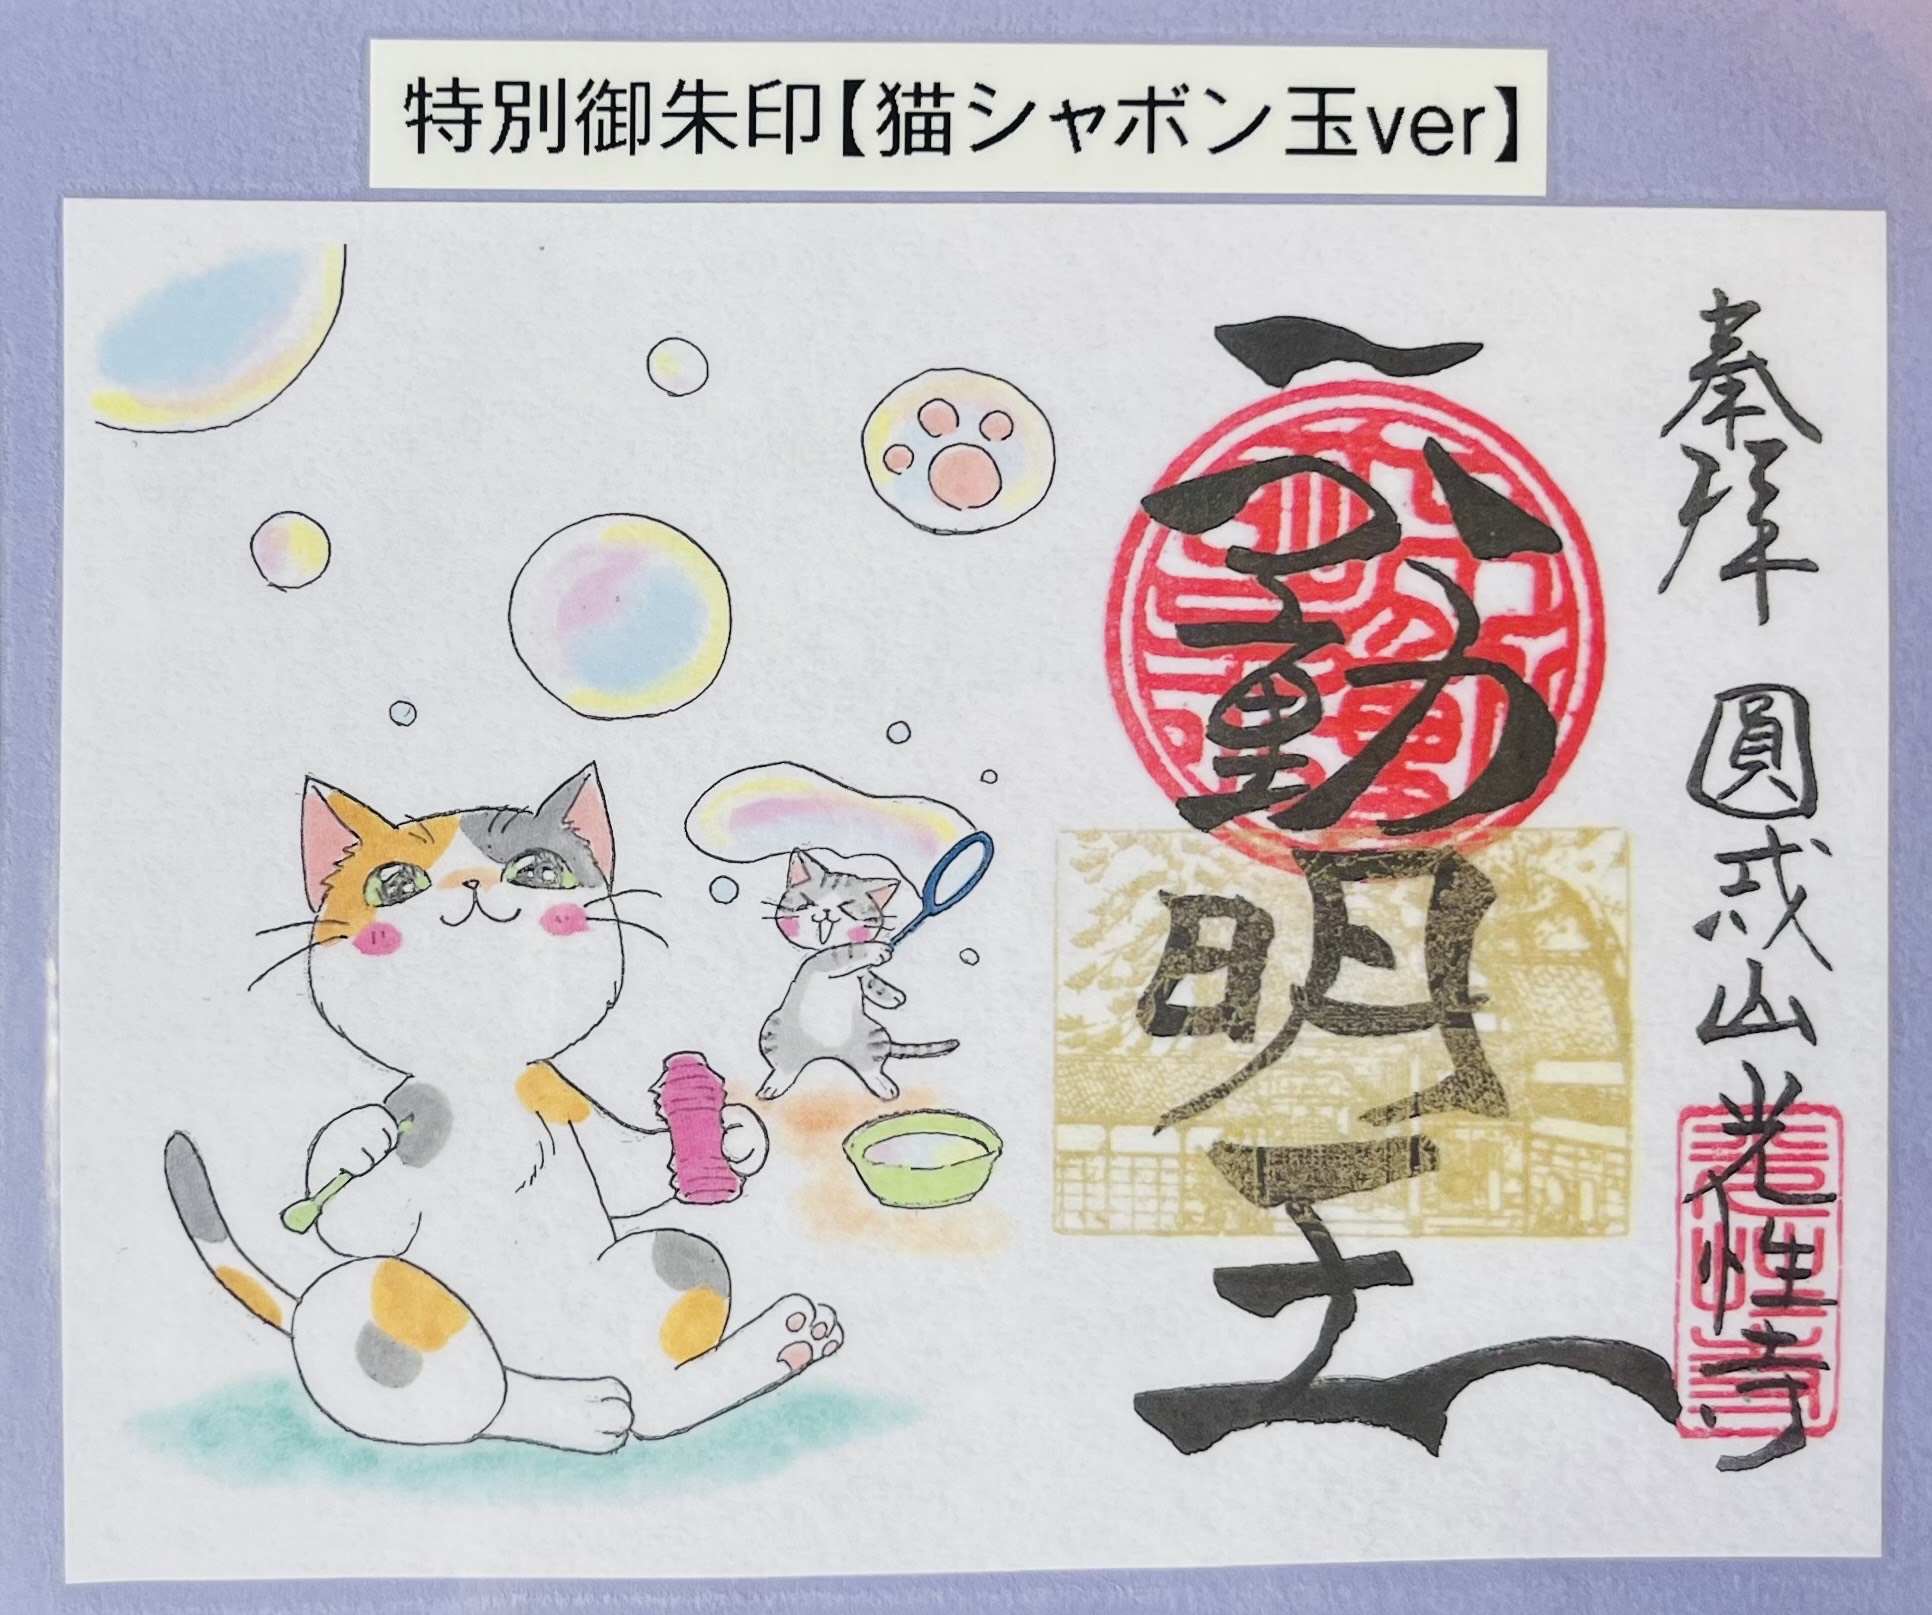 特別御朱印【猫シャボン玉ver】
奉拝 圓成山 光性寺
不動明王